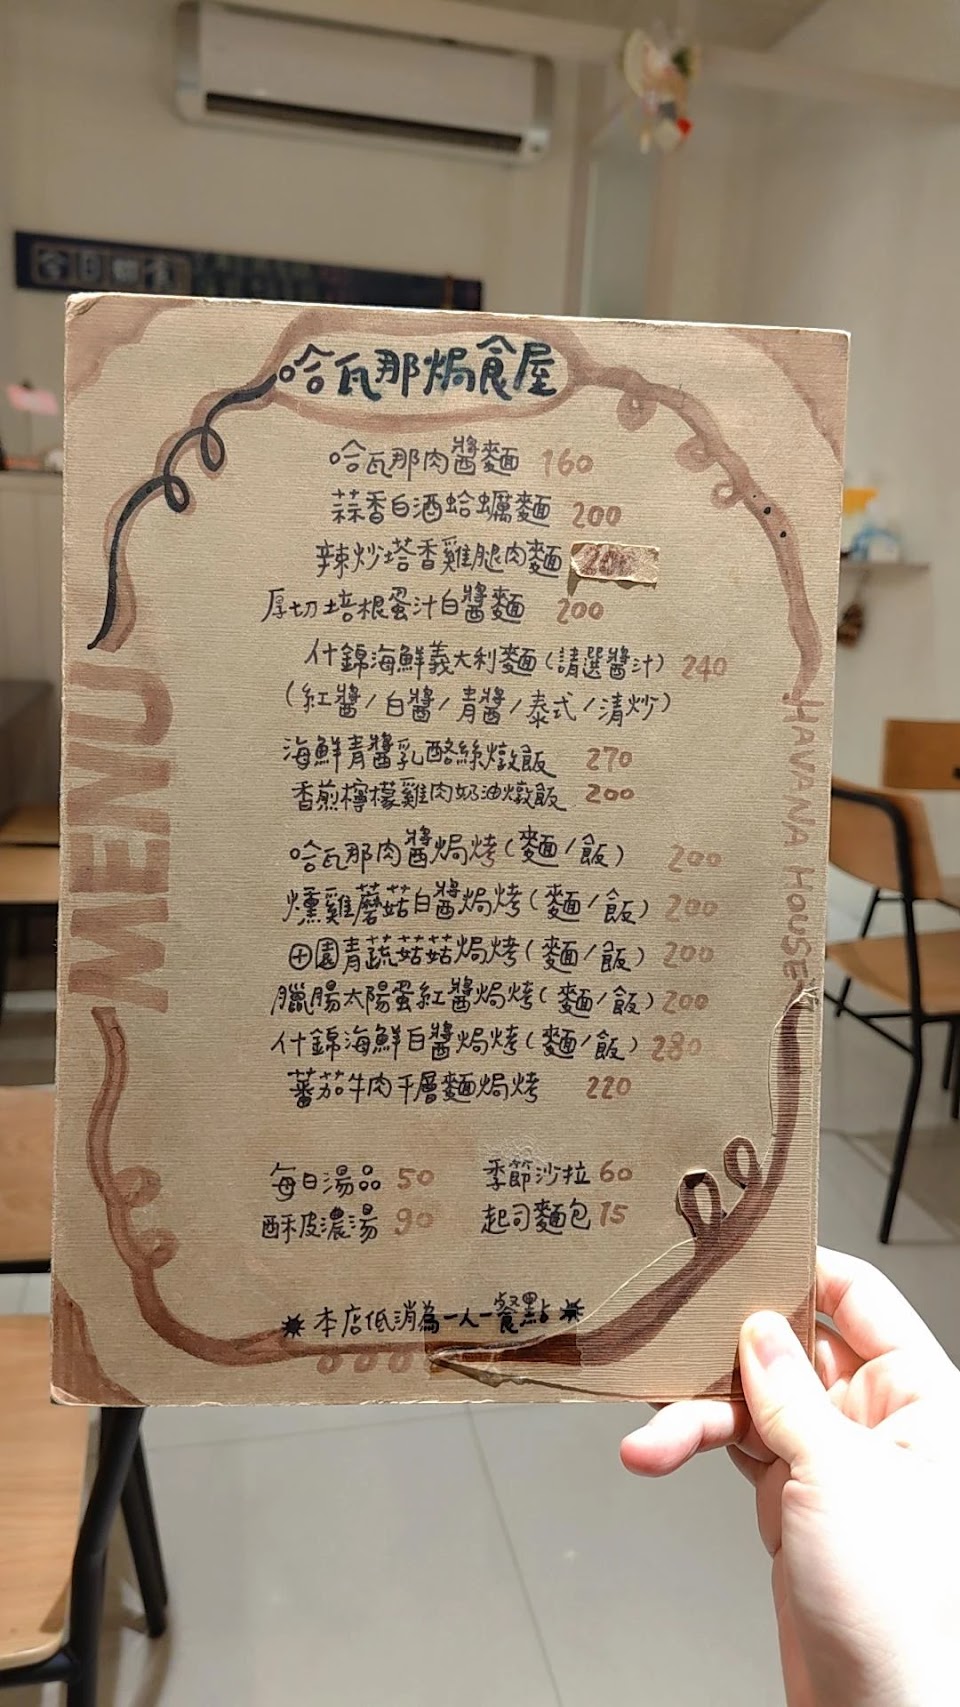 哈瓦那焗食屋
哈瓦那肉醬麵 160
蒜香白酒蛤蠣麵 200
辣炒塔香雞腿肉麵 200
厚切培根蛋汁白醬麵 200
什錦海鮮義大利麵(請選醬汁) 240
(紅醬/白醬/青醬/泰式/清炒)
海鮮青醬乳酪絲燉飯 270
香煎檸檬雞肉奶油燉飯 200
哈瓦那肉醬焗烤(麵/飯) 200
燻雞蘑菇白醬焗烤(麵/飯) 200
田園青蔬菇菇焗烤(麵/飯) 200
臘腸太陽蛋紅醬焗烤(麵/飯) 200
什錦海鮮白醬焗烤(麵/飯) 280
蕃茄牛肉千層麵焗烤 220
每日湯品 50 季節沙拉 60
酥皮濃湯 90 起司麵包 15
※本店低消為一人一餐點※
MENU
HAVANA HOUSE